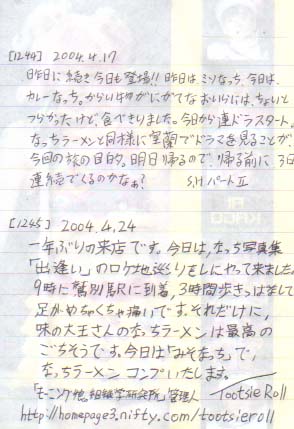 [1244] 2004.4.17
昨日に続き今日も登場!! 昨日はミソなっち、今日は、
カレーなっち。からい物がにがてなおいらには、ちょいと
つらかったけど、食べきりました。今日から連ドラスタート。
なっちラーメンと同様に室蘭でドラマを見ることが、
今回の旅の目的。明日帰るので、帰る前に、3日
連続でくるのかなぁ?
S,H パートⅡ
[1245] 2004.4.24
一年ぶりの来店です。今日は、なっち写真集
「出逢い」のロケ地巡りをしにやって来ました。
9時に鷲別駅に到着、3時間歩きっぱなしで
足がめちゃくちゃ痛いです。それだけに、
味の大王さんのなっちラーメンは最高の
ごちそうです。今日は「みそなっち」で、
なっちラーメン コンプいたします。
「モーニング娘。相組学研究所」管理人 Tootsie Roll
http://homepage3.nifty.com/tootsieroll